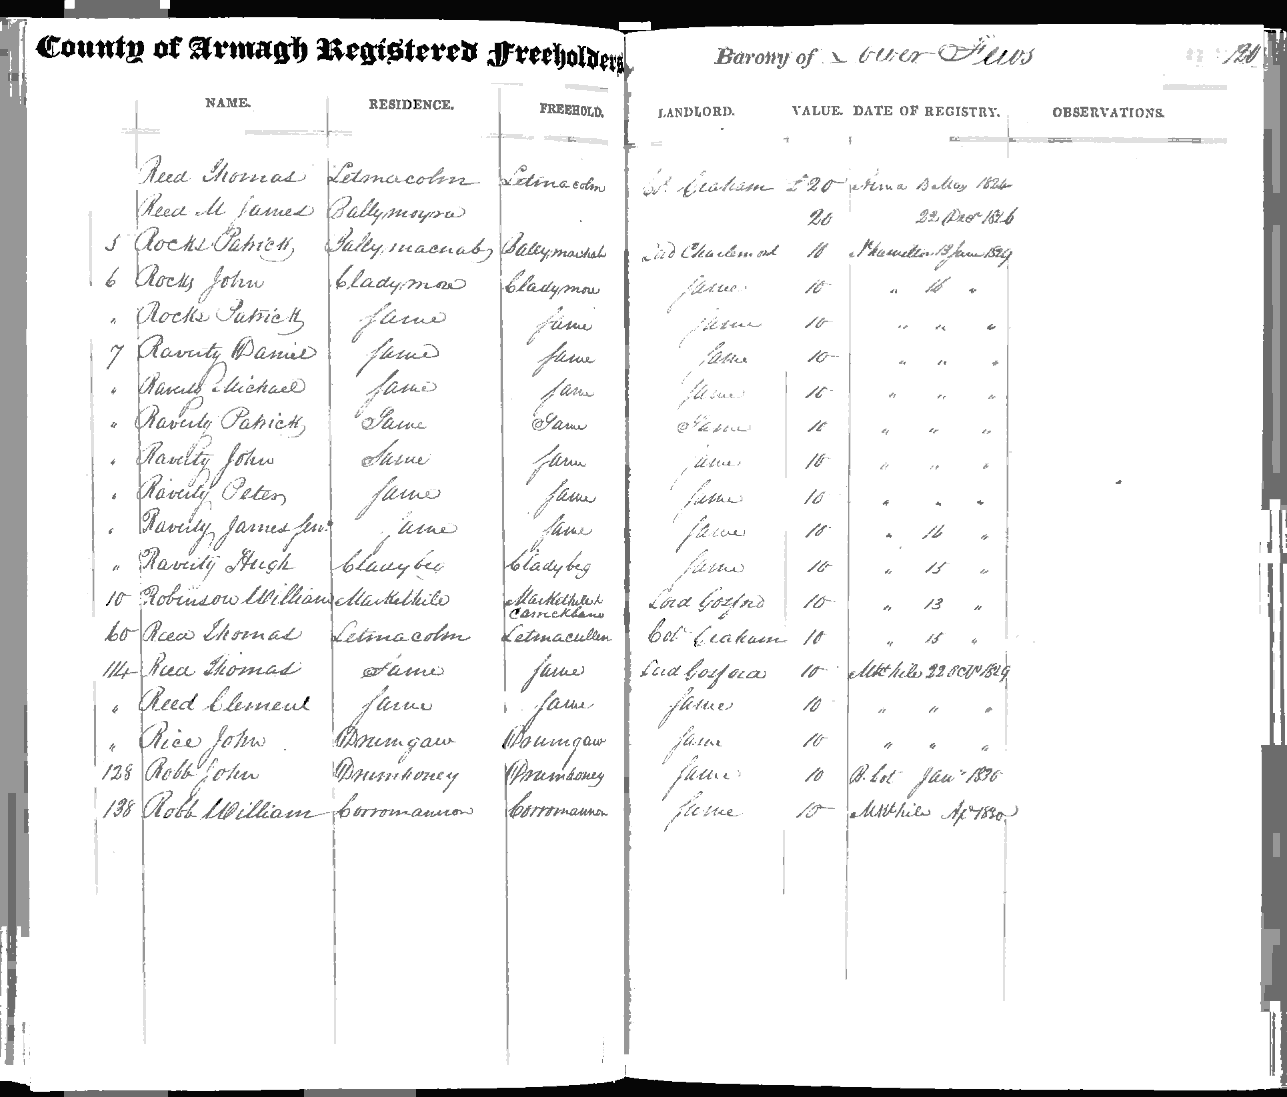 County of Armagh Registered Freeholders Barony of Lower Fews 120
NAME. RESIDENCE. FREEHOLD. LANDLORD. VALUE. DATE OF REGISTRY. OBSERVATIONS.
Reed Thomas Letmacolm Letmacolm Col. Graham £20 May 1824
Reed M James Ballymoyra 20 22 Decr 1826
5 Rocks Patrick Bally,macnab Ballymacnab Lord Charlemont 10 Nhamilton 13 June 1829
6 Rocks John Cladymore Cladymore Same 10 " 16 "
" Rocks Patrick Same Same Same 10 " " "
7 Raverty Daniel Same Same Same 10 " " "
" Raverty Michael Same Same Same 10 " " "
" Raverty Patrick Same Same Same 10 " " "
" Raverty John Same Same Same 10 " " "
" Raverty Peter Same Same Same 10 " " "
" Raverty James Senr Same Same Same 10 " 16 "
" Raverty Hugh Cladybeg Cladybeg Same 10 " 15 "
10 Robinson William Markethile Markethile & Carrickbane Lord Gosford 10 " 13 "
60 Reed Thomas Letmacolm Letmacullen Col Graham 10 " 15 "
114 Reed Thomas Same Same Lord Gosford 10 Mkthile 22 Octr 1829
" Reed Clement Same Same Same 10 " " "
" Rice John Drumgaw Drumgaw Same 10 " " "
128 Robb John Drumhoney Drumhoney Same 10 Jany 1830
138 Robb William Corromannon Corromannon Same 10 Mkthile Apl 1830